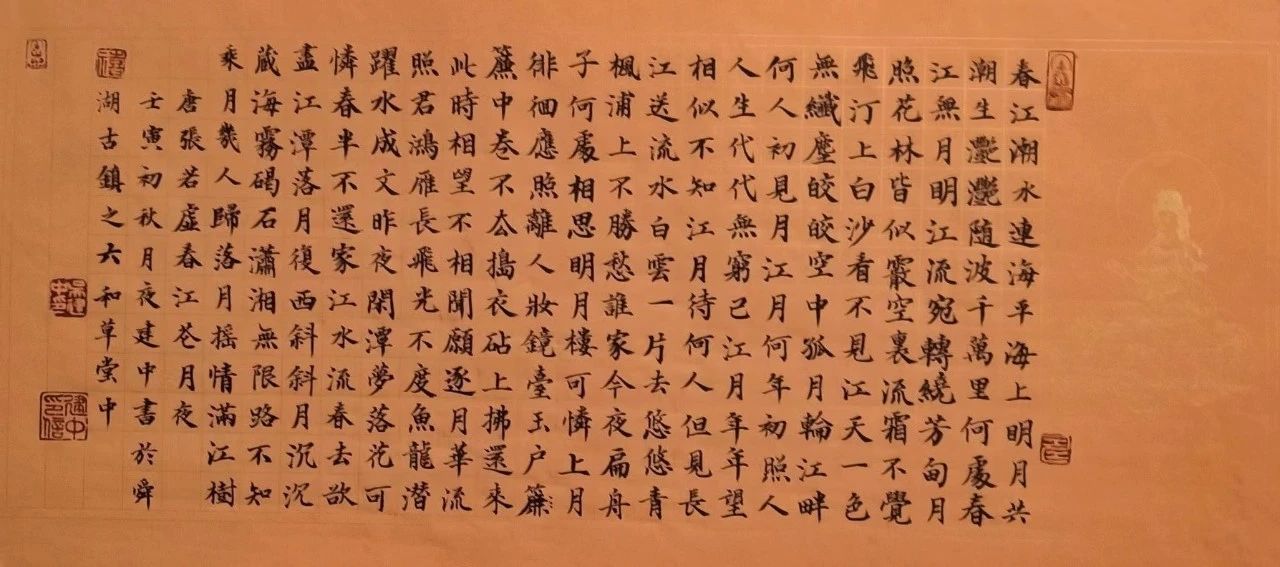 春江潮水連海平海上明月共
潮生灧灧随波千萬里何處春
江無月明江流宛轉繞芳甸月
照花林皆似霰空裏流霜不覺
飛汀上白沙看不見江天一色
無纖塵皎皎空中孤月輪江畔
何人初見月江月何年初照人
人生代代無窮已江月年年望
相似不知江月待何人但見長
江送流水白雲一片去悠悠青
楓浦上不勝愁誰家今夜扁舟
子何處相思明月樓可憐上月
徘徊應照離人妝鏡臺玉户簾
簾中卷不去搗衣砧上拂還來
此時相望不相聞願逐月華流
照君鴻雁長飛光不度魚龍潛
躍水成文昨夜閑潭夢落花可
憐春半不還家江水流春去欲
盡江潭落月復西斜斜月沉沉
藏海霧碣石瀟湘無限路不知
乘月幾人歸落月摇情滿江樹
唐張若虛春江花月夜
壬寅初秋月夜建中書於舜
湖古鎮之六和草堂中
建中印信